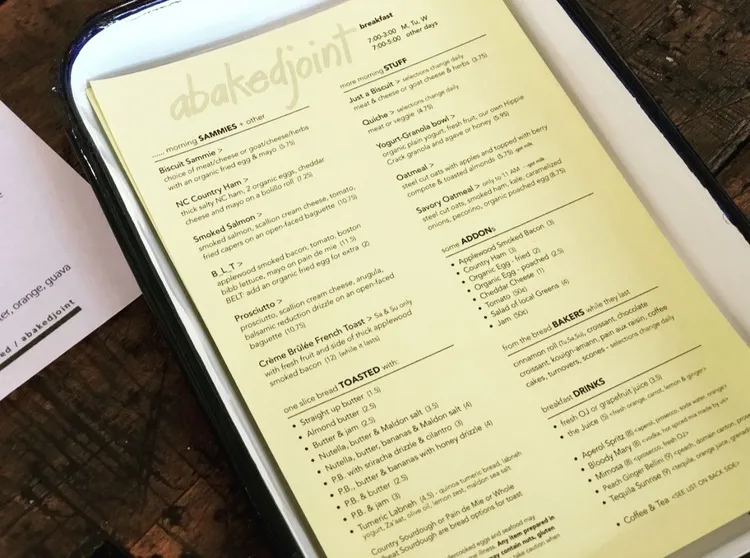 abakedjoint
breakfast
7:00-3:00 M, Tu, W
7:00-5:00 other days
..... morning SAMMIES + other
Biscuit Sammie >
choice of meat/cheese or goat/cheese/herbs
with an organic fried egg & mayo (5.75)
NC Country Ham >
thick salty NC ham, 2 organic eggs, cheddar
cheese and mayo on a bolillo roll (7.25)
Smoked Salmon >
smoked salmon, scallion cream cheese, tomato,
fried capers on an open-faced baguette (10.75)
B_L_T >
applewood smoked bacon, tomato, boston
bibb lettuce, mayo on pain de mie (11.5)
BELT: add an organic fried egg for extra (2)
Prosciutto >
prosciutto, scallion cream cheese, arugula,
balsamic reduction drizzle on an open-faced
baguette (10.75)
Crème Brûlée French Toast > Sa & Su only
with fresh fruit and side of thick applewood
smoked bacon (12) (while it lasts)
one slice bread TOASTED with:
• Straight up butter (1.5)
• Almond butter (2.5)
• Butter & jam (2.5)
• Nutella, butter & Maldon salt (3.5)
• Nutella, butter, bananas & Maldon salt (4)
• P.B. with sriracha drizzle & cilantro (3)
• P.B., butter & bananas with honey drizzle (4)
• P.B. & butter (2.5)
• P.B. & jam (3)
• Tumeric Labneh (4.5) - quinoa tumeric bread, labneh
yogurt, Za'aat, olive oil, lemon zest, maldon sea salt
Country Sourdough or Pain de Mie or Whole
Wheat Sourdough are bread options for toast
more morning STUFF
Just a Biscuit > selections change daily
meat & cheese or goat cheese & herbs (3.75)
Quiche > selections change daily
meat or veggie (4.75)
Yogurt-Granola bowl >
organic plain yogurt, fresh fruit, our own Hippie
Crack granola and agave or honey (5.95)
Oatmeal >
steel cut oats with apples and topped with berry
compote & toasted almonds (5.75)
Savory Oatmeal > only to 11 AM
steel cut oats, smoked ham, kale, caramelized
onions, pecorino, organic poached egg (8.75)
some ADDONs
• Applewood Smoked Bacon (3)
• Country Ham (3)
• Organic Egg - fried (2)
• Organic Egg - poached (2.5)
• Cheddar Cheese (1)
• Tomato (50¢)
• Salad of local Greens (4)
• Jam (50¢)
from the bread BAKERS while they last
cinnamon roll (Tu,Sa,Su), croissant, chocolate
croissant, kouign-amann, pain aux raisin, coffee
cakes, turnovers, scones - selections change daily
breakfast DRINKS
• fresh OJ or grapefruit juice (3.5)
• the Juice (5) <fresh orange, carrot, lemon & ginger>
• Aperol Spritz (8) <aperol, prosecco, soda water, orange>
• Bloody Mary (8) <vodka, hot spiced mix made by us>
• Mimosa (8) <prosecco, fresh OJ>
• Peach Ginger Bellini (9) <peach, domain canton,
• Tequila Sunrise (9) <tequila, orange juice,
• Coffee & Tea <SEE LIST ON BACK SIDE>
er, orange, guava
ed / abakedjoint